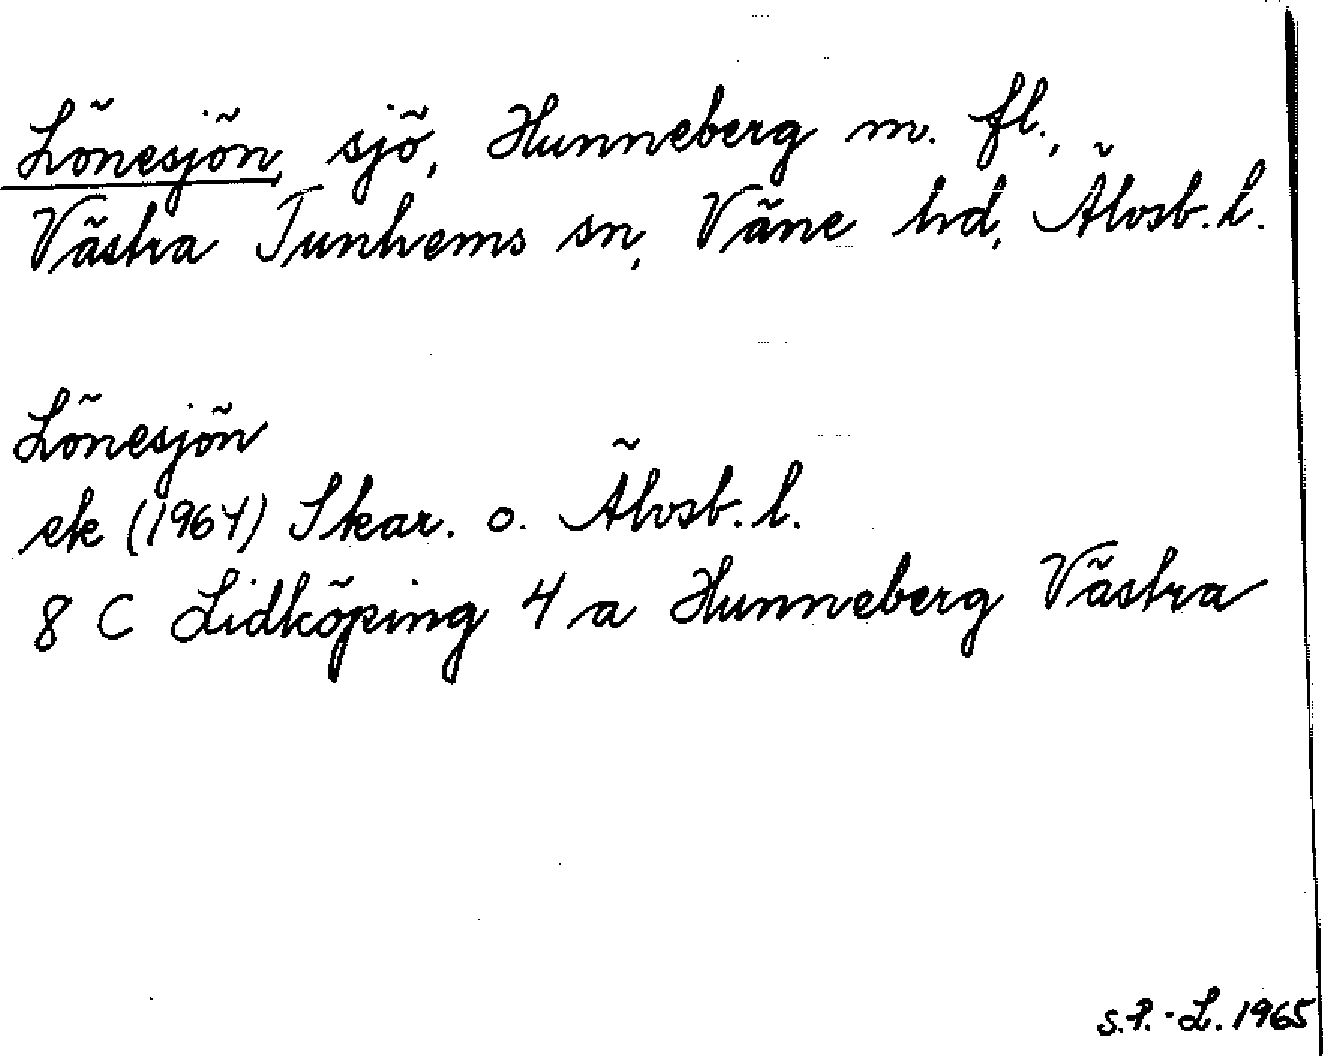 Lönesjön, sjö, Hunneberg m. fl.,
Västra Tunhems sn, Väne hd, Älvsb. l.
Lönesjön
ek (1964) Skar. o. Älvsb. l.
8 C Lidköping 4 a Hunneberg Västra
S.P.-L. 1965